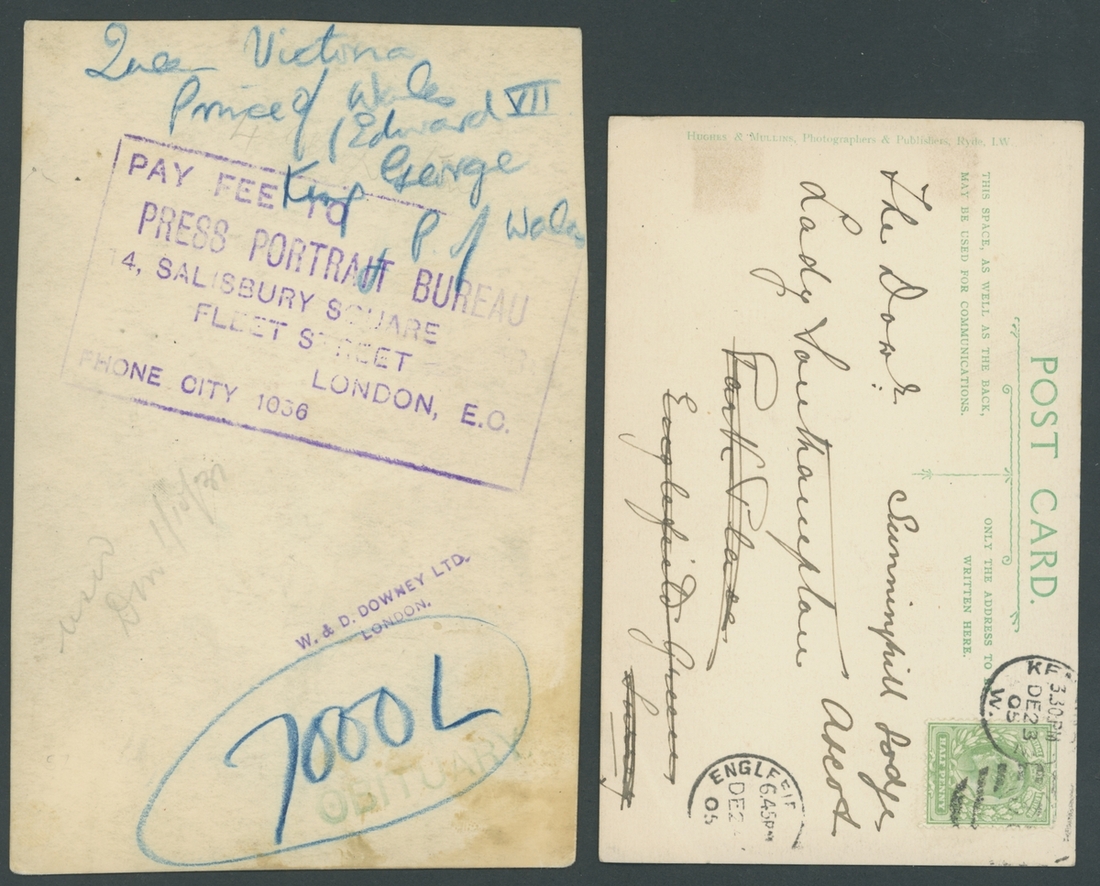 Queen Victoria
Prince of Wales
(Edward VII
King George
P. of Wales
4
PAY FEE TO
PRESS PORTRAIT BUREAU
14, SALISBURY SQUARE
FLEET STREET
LONDON, E.C.
PHONE CITY 1036
used
W. & D. DOWNEY LTD.
LONDON.
7000L
OBITUARY
HUGHES & MULLINS, Photographers & Publishers, Ryde, I.W.
POST CARD.
THIS SPACE, AS WELL AS THE BACK,
MAY BE USED FOR COMMUNICATIONS.
ONLY THE ADDRESS TO BE
WRITTEN HERE.
The Dowr.
Lady Southampton
Park Place
Englefield Green
Surrey
Sunninghill Lodge
Ascot
3.30PM
DE 23
05
W.
HALF PENNY
ENGLEFIE
6.45PM
DE 2
05